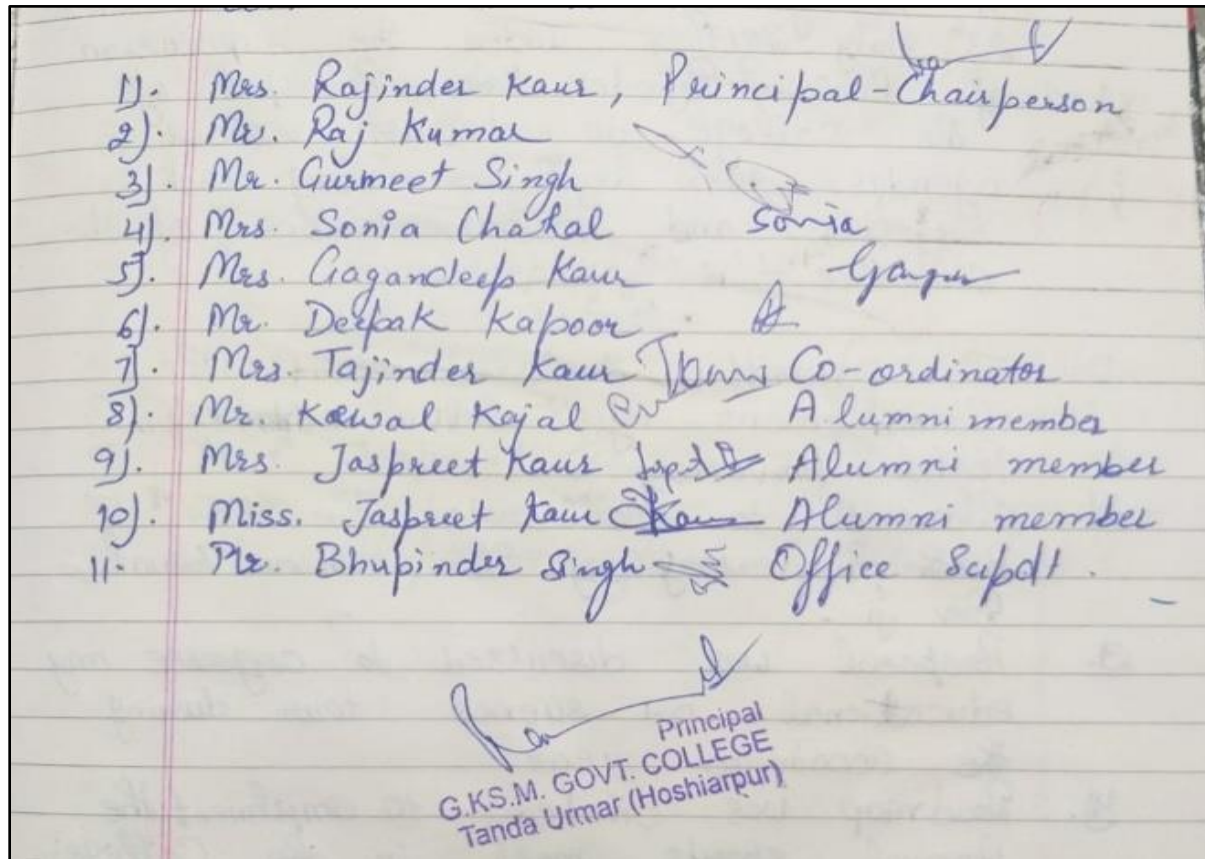 1). Mrs. Rajinder Kaur, Principal-Chairperson
2). Mr. Raj Kumar
3). Mr. Gurmeet Singh
4). Mrs. Sonia Chahal Sonia
5). Mrs. Gagandeep Kaur
6). Mr. Deepak Kapoor
7). Mrs. Tajinder Kaur Co-ordinator
8). Mr. Kawal Kajal Alumni member
9). Mrs. Jaspreet Kaur Alumni member
10). Miss. Jaspreet Kaur Alumni member
11. Mr. Bhupinder Singh Office Supdt.
Principal
G.KS.M. GOVT. COLLEGE
Tanda Urmar (Hoshiarpur)